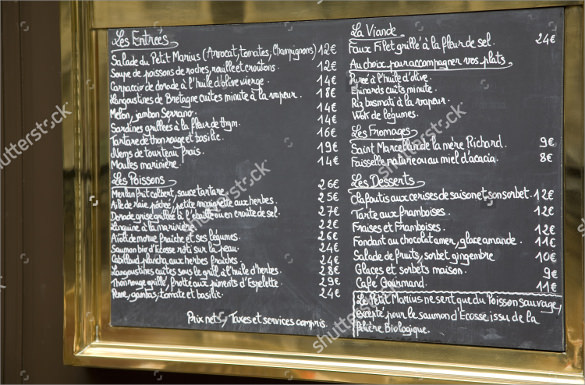 Les Entrées
Salade du Petit Marius (Avocat, tomates, Champignons) 12€
Soupe de poissons de roches, rouille et croûtons. 12€
Carpaccio de dorade à l'huile d'olive vierge. 14€
Langoustines de Bretagne cuites minute à la vapeur. 18€
Melon, jambon Serrano. 14€
Sardines grillées à la fleur de thym. 14€
Tartare de thon rouge et basilic. 16€
de tourteau frais. 19€
Moules marinière. 14€
Les Poissons
Merlan frit colbert, sauce tartare. 26€
Aile de raie, petite aux herbes. 25€
Dorade grise grillée à l' ou en croûte de sel. 27€
à la marinière. 22€
Aïoli de morue fraîche et ses légumes. 26€
Saumon bio d'Ecosse rôti sur la peau 24€
Cabillaud plancha aux herbes fraîches 24€
Langoustines cuites sous le gril à l'huile d'herbes. 28€
Thon rouge grillé, frotté aux piments d'Espelette 29€
tomate et basilic. 24€
Prix nets, Taxes et services compris.
La Viande
Faux Filet grillé à la fleur de sel. 24€
Au choix pour accompagner vos plats,
Purée à l'huile d'olive.
Epinards cuits minute.
Riz basmati à la vapeur.
Wok de légumes.
Les Fromages
Saint Marcellin de la mère Richard. 9€
Faisselle nature ou au miel d'acacia. 8€
Les Desserts
Clafoutis aux cerises de saison et son sorbet. 12€
Tarte aux framboises. 12€
Fraises et Framboises. 12€
Fondant au chocolat amer, glace amande. 11€
Salade de fruits, sorbet gingembre 10€
Glaces et sorbets maison. 9€
Café Gourmand. 11€
Le Petit Marius ne sert que du Poisson sauvage
excepté pour le saumon d'Ecosse issu de la
filière Biologique.